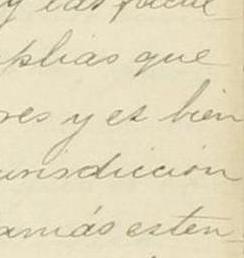 y las facul
plias que
res y es bien
urisdicción
amás esten